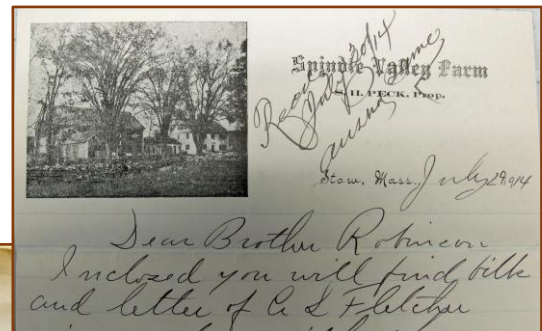 Spindle Valley Farm
S. H. PECK, Prop.
Recd
July 30/14
ansrd
same
Stow, Mass., July 29, 1914
Dear Brother Robinson
Inclosed you will find bills
and letter of C L Fletcher